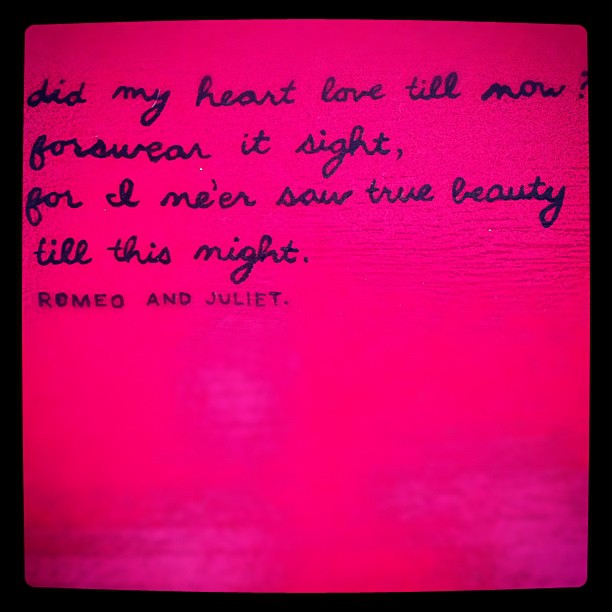 did my heart love till now?
forswear it sight,
for I ne'er saw true beauty
till this night.
ROMEO AND JULIET.